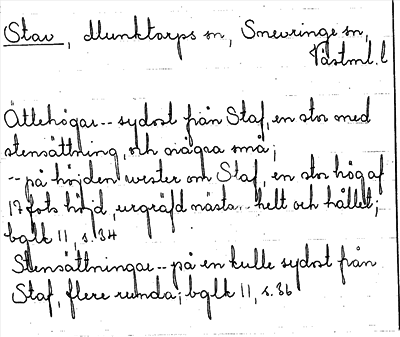 Stav, Munktorps sn, Snevringe sn,
Västml. l
Ättehögar -- sydost från Staf, en stor med
stensättning, och några små;
-- på höjden wester om Staf, en stor hög af
17 fots höjd, urgräfd nästa.. helt och hållet;
bglk 11, s. 34
Stensättningar -- på en kulle sydost från
Staf, flere runda; bglk 11, s. 36